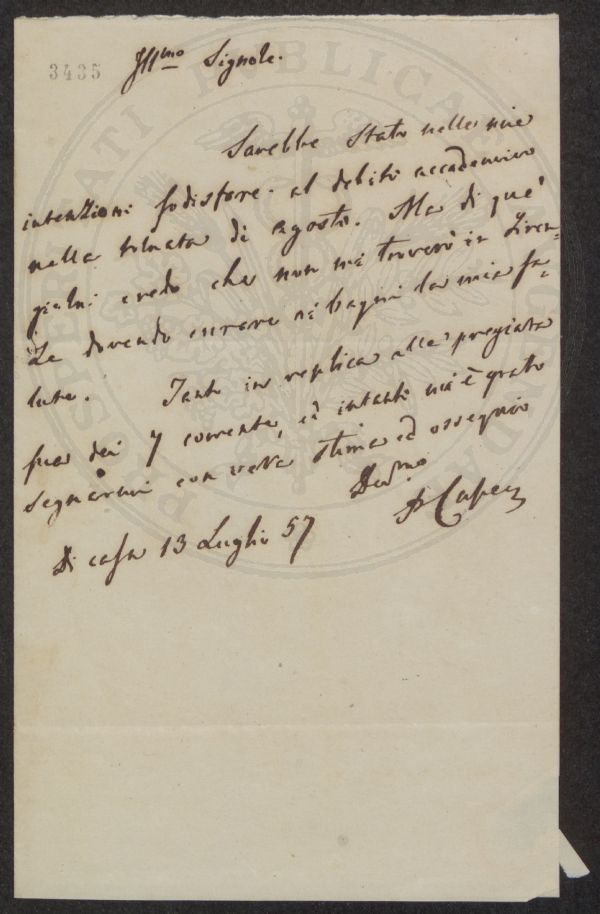 3435
Ill.mo Signore.
Sarebbe stato nelle mie
intenzioni sodisfare al debito accademico
nella tornata di Agosto. Ma di que'
giorni credo che non mi troverò in Firen-
ze dovendo curare ai bagni la mia sa-
lute. Tanto in replica alla pregiata
sua dei 7 corrente, ed intanto mi è grato
segnarmi con vera stima ed ossequio
Di casa 13 Luglio 57
PROSPERITATI PUBLICAE AUGENDAE